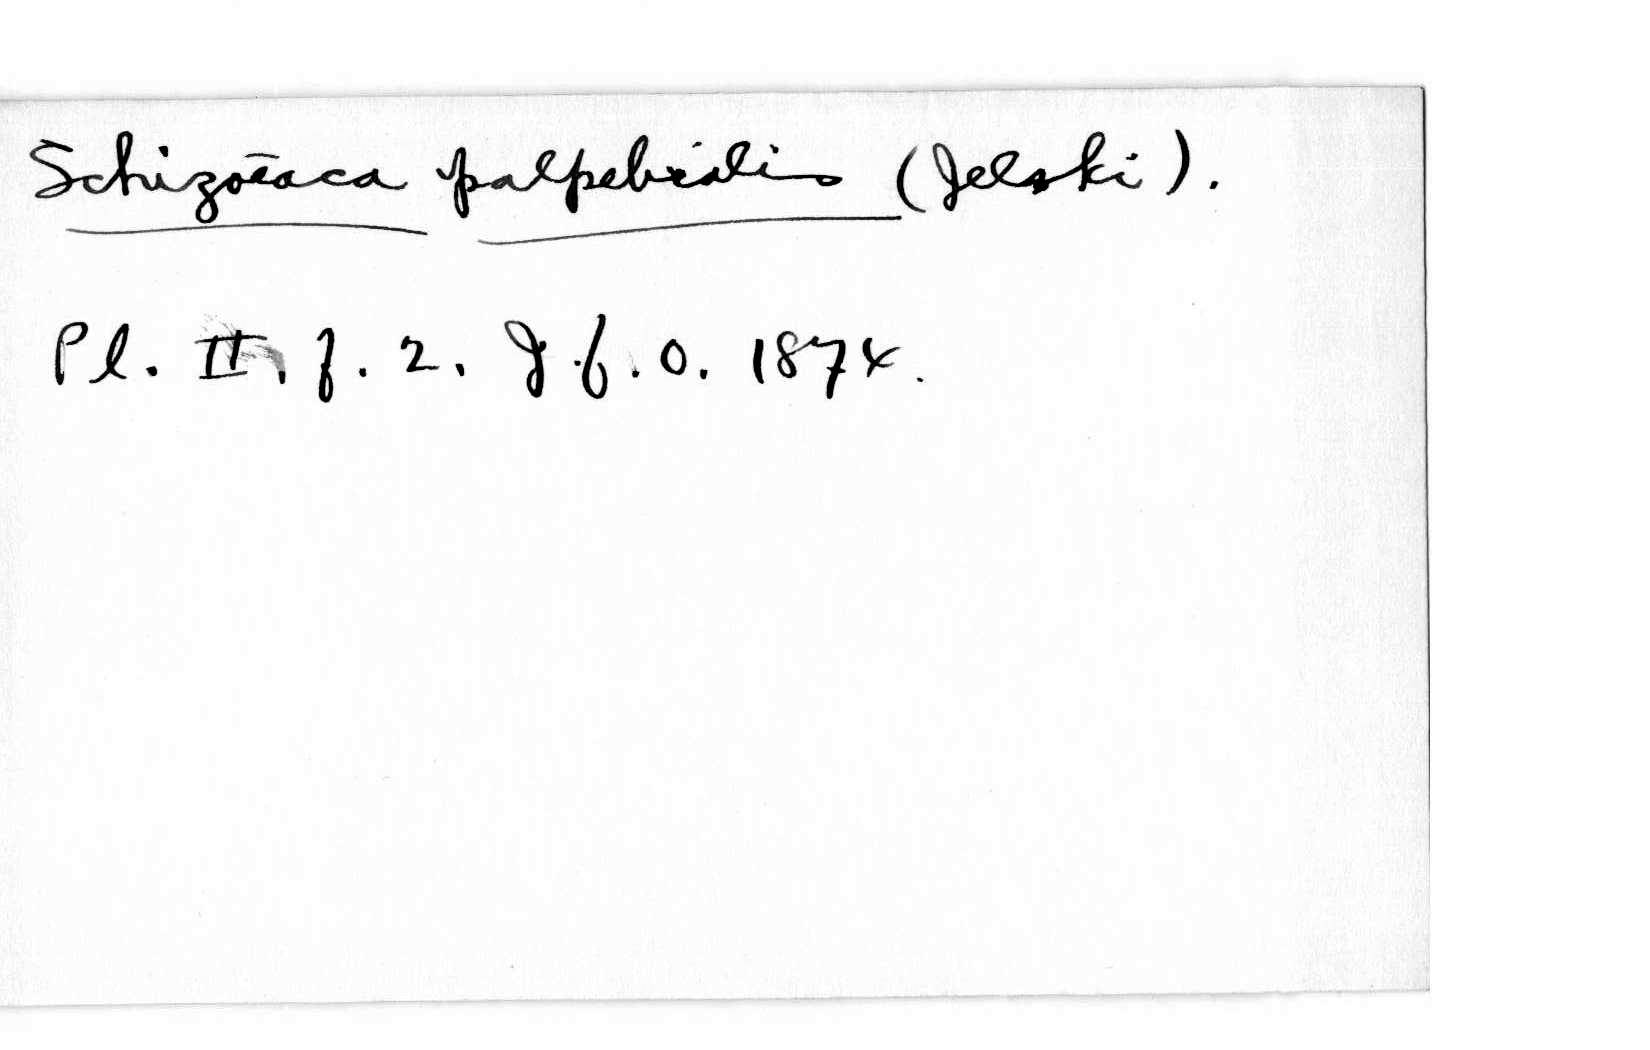 Schizoëaca palpebralis (Jelski).
Pl. II, f. 2. J. f. O. 1874.